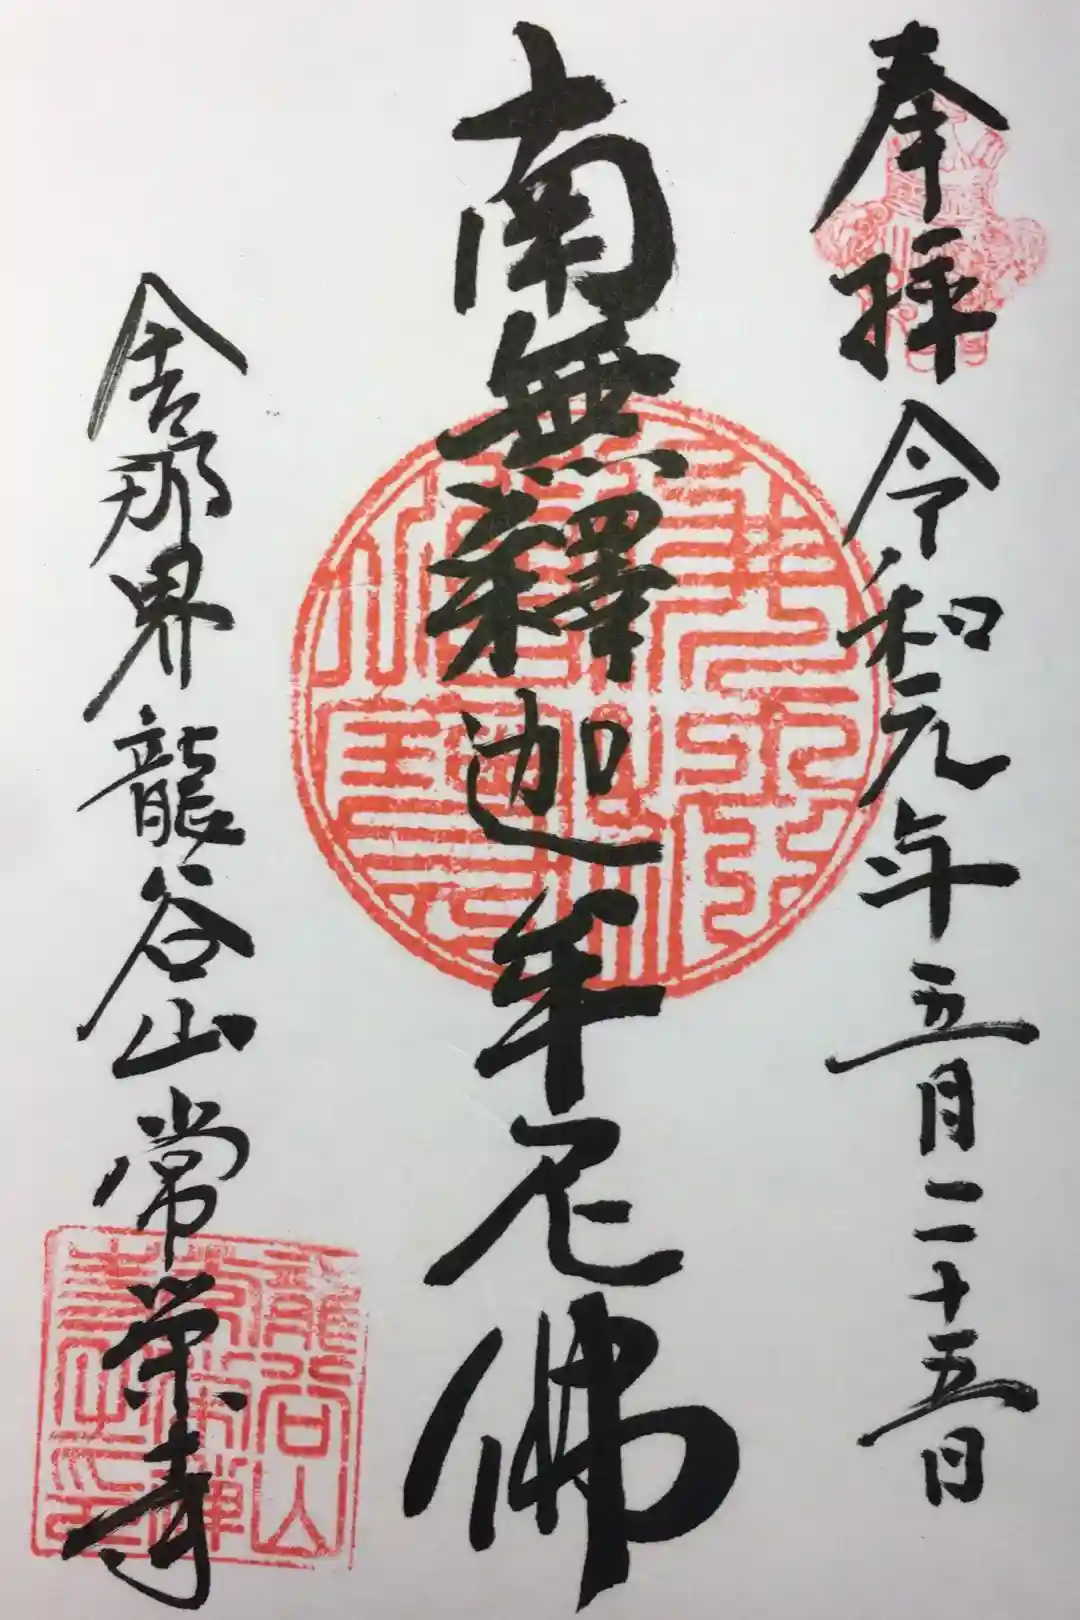 奉拝 令和元年五月二十五日
南無釋迦牟尼佛
舎那界 龍谷山 常栄寺